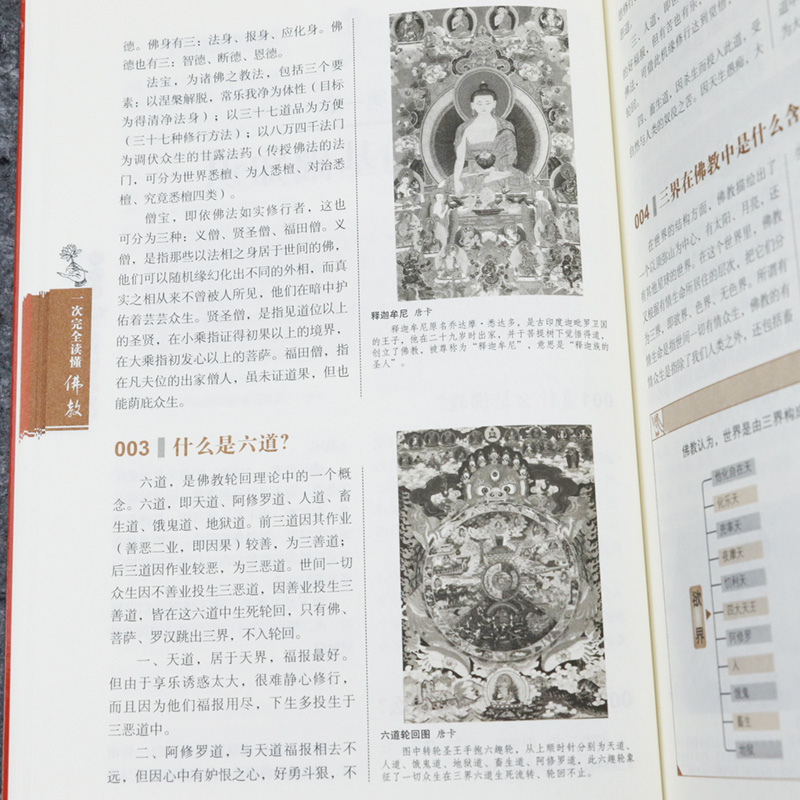 德。佛身有三：法身、报身、应化身。佛
德也有三：智德、断德、恩德。
法宝，为诸佛之教法，包括三个要
素：以涅槃解脱，常乐我净为体性（目标
为得清净法身）；以三十七道品为方便
（三十七种修行方法）；以八万四千法门
为调伏众生的甘露法药（传授佛法的法
门，可分为世界悉檀、为人悉檀、对治悉
檀、究竟悉檀四类）。
僧宝，即依佛法如实修行者，这也
可分为三种：义僧、贤圣僧、福田僧。义
僧，是指那些以法相之身居于世间的佛，
他们可以随机缘幻化出不同的外相，而真
实之相从来不曾被人所见，他们在暗中护
佑着芸芸众生。贤圣僧，是指见道位以上
的圣贤，在小乘指证得初果以上的境界，
在大乘指初发心以上的菩萨。福田僧，指
在凡夫位的出家僧人，虽未证道果，但也
能荫庇众生。
003 什么是六道？
六道，是佛教轮回理论中的一个概
念。六道，即天道、阿修罗道、人道、畜
生道、饿鬼道、地狱道。前三道因其作业
（善恶二业，即因果）较善，为三善道；
后三道因作业较恶，为三恶道。世间一切
众生因不善业投生三恶道，因善业投生三
善道，皆在这六道中生死轮回，只有佛、
菩萨、罗汉跳出三界，不入轮回。
一、天道，居于天界，福报最好。
但由于享乐诱惑太大，很难静心修行，
而且因为他们福报用尽，下生多投生于
三恶道中。
二、阿修罗道，与天道福报相去不
远，但因心中有妒恨之心，好勇斗狠，不
一次完全读懂
佛教
释迦牟尼 唐卡
释迦牟尼原名乔达摩·悉达多，是古印度迦毗罗卫国
的王子，他在二十九岁时出家，并于菩提树下觉悟得道，
创立了佛教，被尊称为“释迦牟尼”，意思是“释迦族的
圣人”。
六道轮回图 唐卡
图中转轮圣王手抱六趣轮，从上顺时针分别为天道、
人道、饿鬼道、地狱道、畜生道、阿修罗道，此六趣轮象
征了一切众生在三界六道生死流转、轮回不止。
三、人道，即
四、畜生道，因杀生而投入此道，受
自然与人类的奴役之苦。因天生愚痴，大
004 三界在佛教中是什么含
在世界的结构方面，佛教描绘出了
一个以须弥山为中心，有太阳、月亮、还
有其他星球的世界。在这个世界里，佛教
又根据有情生命所居住的层次，把它们分
为三界，即欲界、色界、无色界。所谓有
情生命是指世间一切有情众生，佛教的有
情众生是指除了我们人类之外，还包括畜
佛教认为，世界是由三界构成
他化自在天
化乐天
兜率天
夜摩天
忉利天
四大天王
阿修罗
人
饿鬼
畜生
地狱
欲界